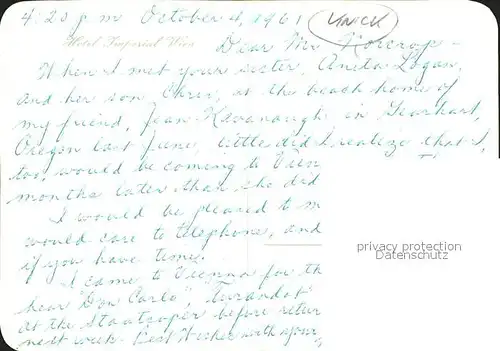 4:20 p m October 4, 1961 VNICK
Hotel Imperial Wien
Dear Mr Norcrop -
When I met your sister, Anita Logan,
and her son, Chris, at the beach home of
my friend, Jean Kavanaugh in Gearhart,
Oregon last June, little did I realize that I,
too, would be coming to Vien
months later than she did
I would be pleased to m
would care to telephone, and
if you have time.
privacy protection
Datenschutz
I came to Vienna for th
hear "Don Carlo", Turandot
at the Staatsoper before retur
next week. Best Wishes with your